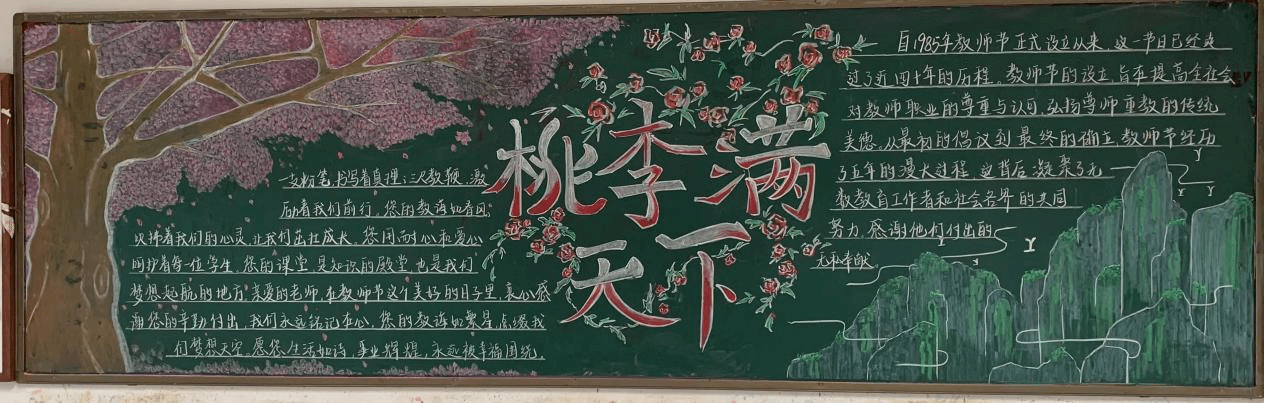 一支粉笔,书写着真理;三尺教鞭,激
励着我们前行。您的教诲如春风
吹拂着我们的心灵,让我们茁壮成长。您用耐心和爱心
呵护着每一位学生。您的课堂,是知识的殿堂,也是我们
梦想起航的地方。亲爱的老师,在教师节这个美好的日子里,衷心感
谢您的辛勤付出,我们永远铭记在心。您的教诲如繁星,点缀我
们梦想天空。愿您生活如诗,事业辉煌,永远被幸福围绕。
桃李满
天下
自1985年教师节正式设立从来,这一节日已经走
过了近四十年的历程。教师节的设立,旨在提高全社会
对教师职业的尊重与认可,弘扬尊师重教的传统
美德。从最初的倡议到最终的确立,教师节经历
了五年的漫长过程,这背后凝聚了无
数教育工作者和社会各界的共同
努力,感谢他们付出的
无私奉献。